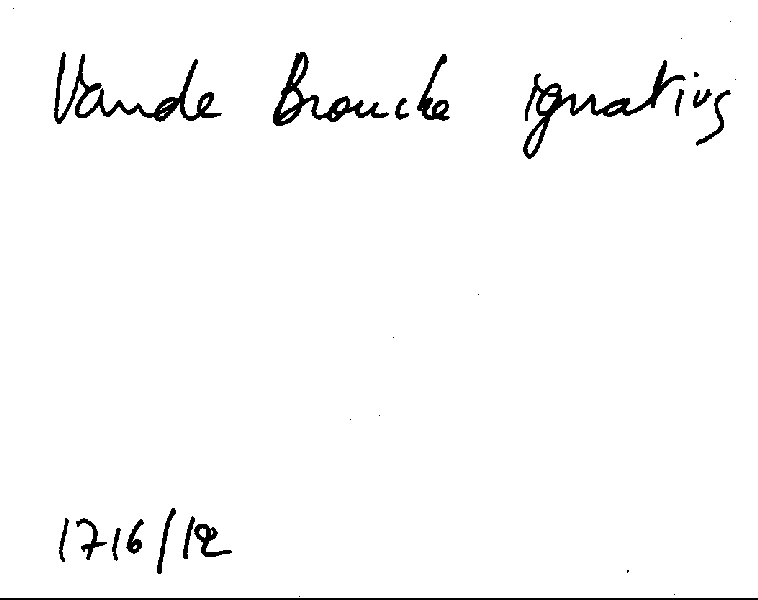 Vande Broucke ignatius
1716/12